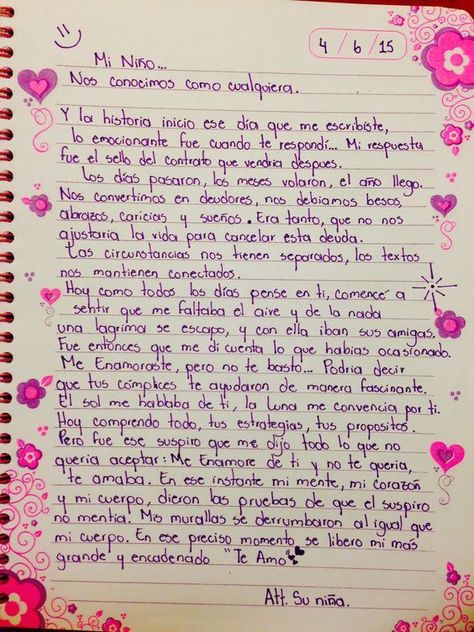 4 / 6 / 15
Mi Niño...
Nos conocimos como cualquiera.
Y la historia inicio ese día que me escribiste,
lo emocionante fue cuando te respondí... Mi respuesta
fue el sello del contrato que vendria despues.
Los días pasaron, los meses volaron, el año llego.
Nos convertimos en deudores, nos debiamos besos,
abrazos, caricias y sueños. Era tanto, que no nos
ajustaria la vida para cancelar esta deuda.
Las circunstancias nos tienen separados, los textos
nos mantienen conectados.
Hoy como todos los días pense en ti, comencé a
sentir que me faltaba el aire y de la nada
una lagrima se escapo, y con ella iban sus amigas.
Fue entonces que me di cuenta lo que habias ocasionado.
Me Enamoraste, pero no te basto... Podria decir
que tus cómplices te ayudaron de manera fascinante.
El sol me hablaba de ti, la luna me convencia por ti.
Hoy comprendo todo, tus estrategias, tus propositos.
Pero fue ese suspiro que me dijo todo lo que no
queria aceptar: Me Enamore de ti y no te queria,
te amaba. En ese instante mi mente, mi corazón
y mi cuerpo, dieron las pruebas de que el suspiro
no mentia. Mis murallas se derrumbaron al igual que
mi cuerpo. En ese preciso momento se libero mi más
grande y encadenado "Te Amo"
Att. Su niña.